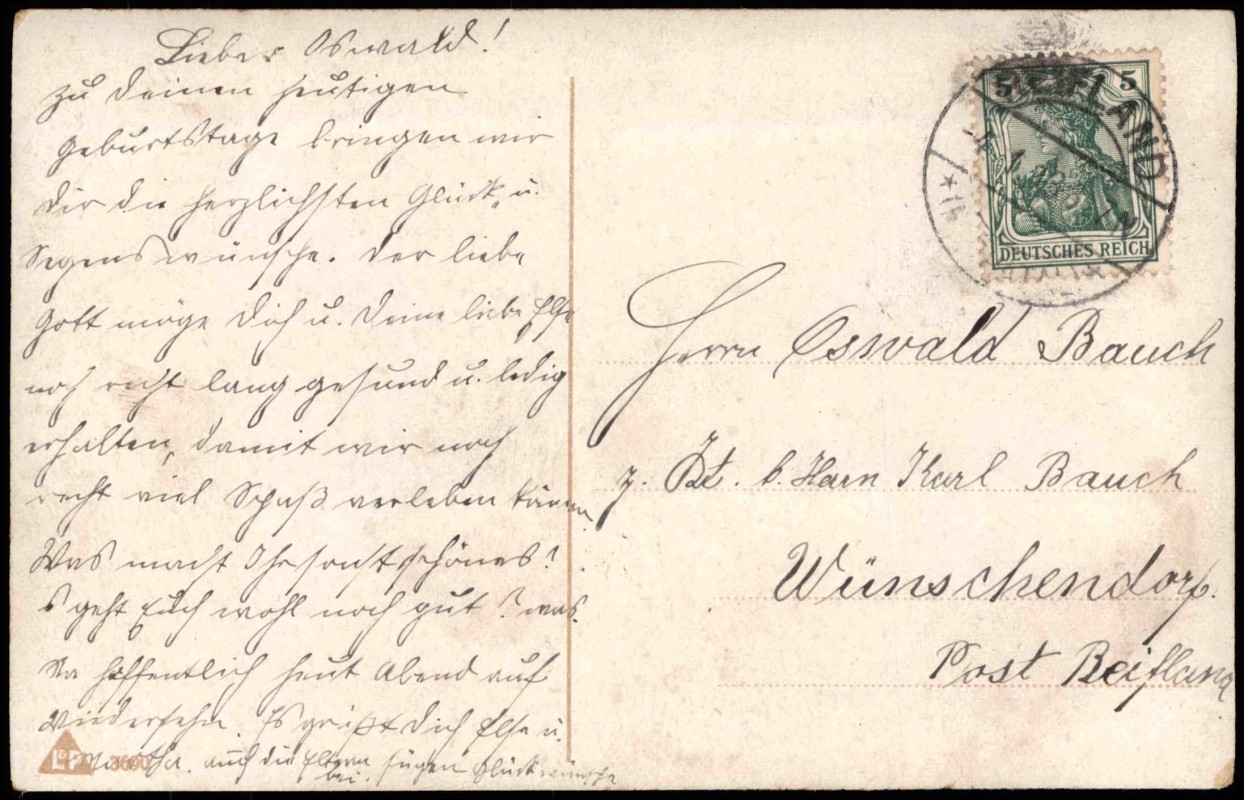 Lieber Oswald!
Zu Deinem heutigen
Geburtstage bringen wir
Dir die herzlichsten Glück- u.
Segenswünsche. Der liebe
Gott möge Dich u. Deine liebe Else
noch recht lang gesund u. ledig
erhalten, damit wir noch
recht viel Spaß verleben können.
Was macht Ihr sonst schönes?
's geht Euch wohl noch gut? was.
Na hoffentlich heut Abend auf
Wiedersehn. Es grüßt Dich Else u.
Martha. auch die Eltern fügen Glückwünsche
bei.
5 5
DEUTSCHES REICH
REIFLAND
Herrn Oswald Bauch
z. Zt. b. Herrn Karl Bauch
Wünschendorf.
Post Reifland
L&P 3690